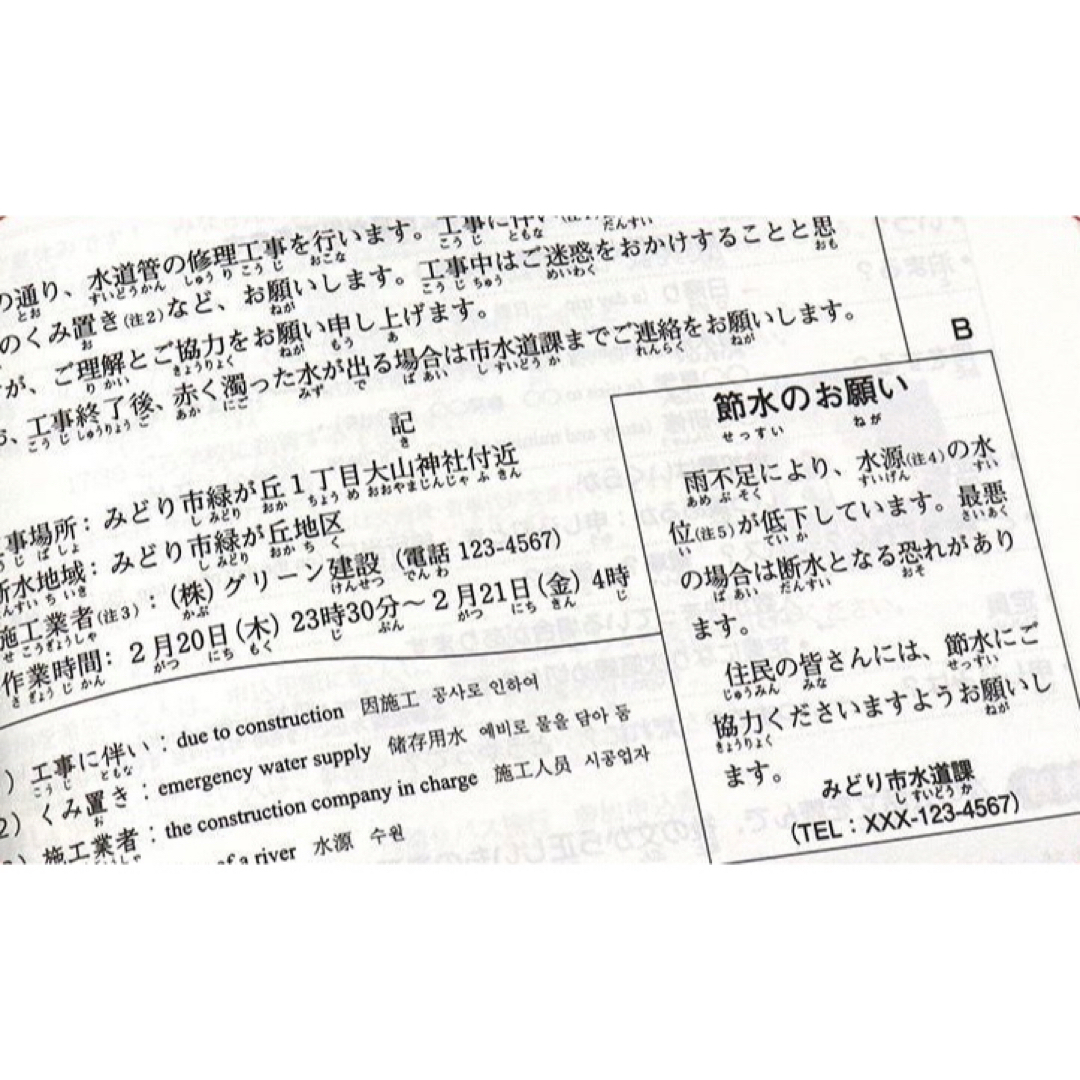 の通り、水道管の修理工事を行います。工事に伴い(注1)
のくみ置き(注2)など、お願いします。工事中はご迷惑をおかけすることと思
が、ご理解とご協力をお願い申し上げます。
、工事終了後、赤く濁った水が出る場合は市水道課までご連絡をお願いします。
記
事場所：みどり市緑が丘1丁目大山神社付近
断水地域：みどり市緑が丘地区
施工業者(注3)：(株)グリーン建設(電話 123-4567)
作業時間：2月20日(木) 23時30分～2月21日(金) 4時
)工事に伴い：due to construction 因施工 공사로 인하여
2)くみ置き：emergency water supply 储存用水 예비로 물을 담아 둠
)施工業者：the construction company in charge 施工人员 시공업자
of a river 水源 수원
B
節水のお願い
雨不足により、水源(注4)の水
位(注5)が低下しています。最悪
の場合は断水となる恐れがあり
ます。
住民の皆さんには、節水にご
協力くださいますようお願いし
ます。
みどり市水道課
(TEL：XXX-123-4567)